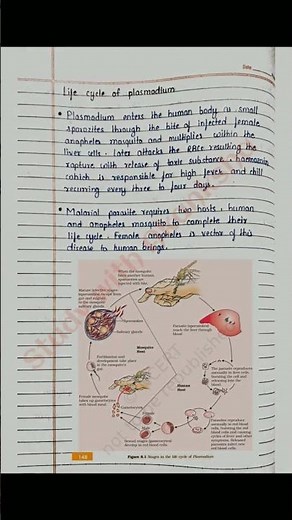 Date
Life cycle of plasmodium
• Plasmodium enters the human body as small
sporozites through the bite of infected female
anopheles mosquito and multiplies within the
liver cells. Later attacks the RBCs resulting the
rupture with release of toxic substance, haemozoin
which is responsible for high fever and chill
recurring every three to four days.
• Malarial parasite requires two hosts, human
and anopheles mosquito to complete their
life cycle. Female anopheles is vector of this
disease to human beings.
When the mosquito
bites another human,
sporozoites are
injected with bite
Mature infective stages
(sporozoites) escape from
gut and migrate
to the mosquito
salivary glands
Sporozoites
Salivary glands
Parasite (sporozoites)
reach the liver through
blood
Mosquito
Host
Fertilisation and
development take place
in the mosquito's
gut
The parasite reproduces
asexually in liver cells,
bursting the cell and
releasing into the
blood
Human
Host
Female mosquito
takes up gametocytes
with blood meal
Gametocytes
Female
Male
Sexual stages (gametocytes)
develop in red blood cells
Parasites reproduce
asexually in red blood
cells, bursting the red
blood cells and causing
cycles of fever and other
symptoms. Released
parasites infect new
red blood cells
148
Figure 8.1 Stages in the life cycle of Plasmodium